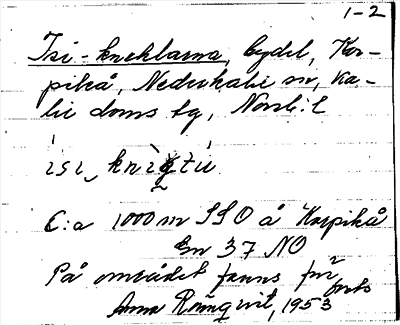 1-2
Isi-kneklarna, bydel, Kor-
pikå, Nederkalix sn, Ka-
lix doms tg, Norrb. l
C:a 1000 m SSO å Korpikå
Gn 37 NO
På området fanns för
forts
Anna Rönqvist, 1953